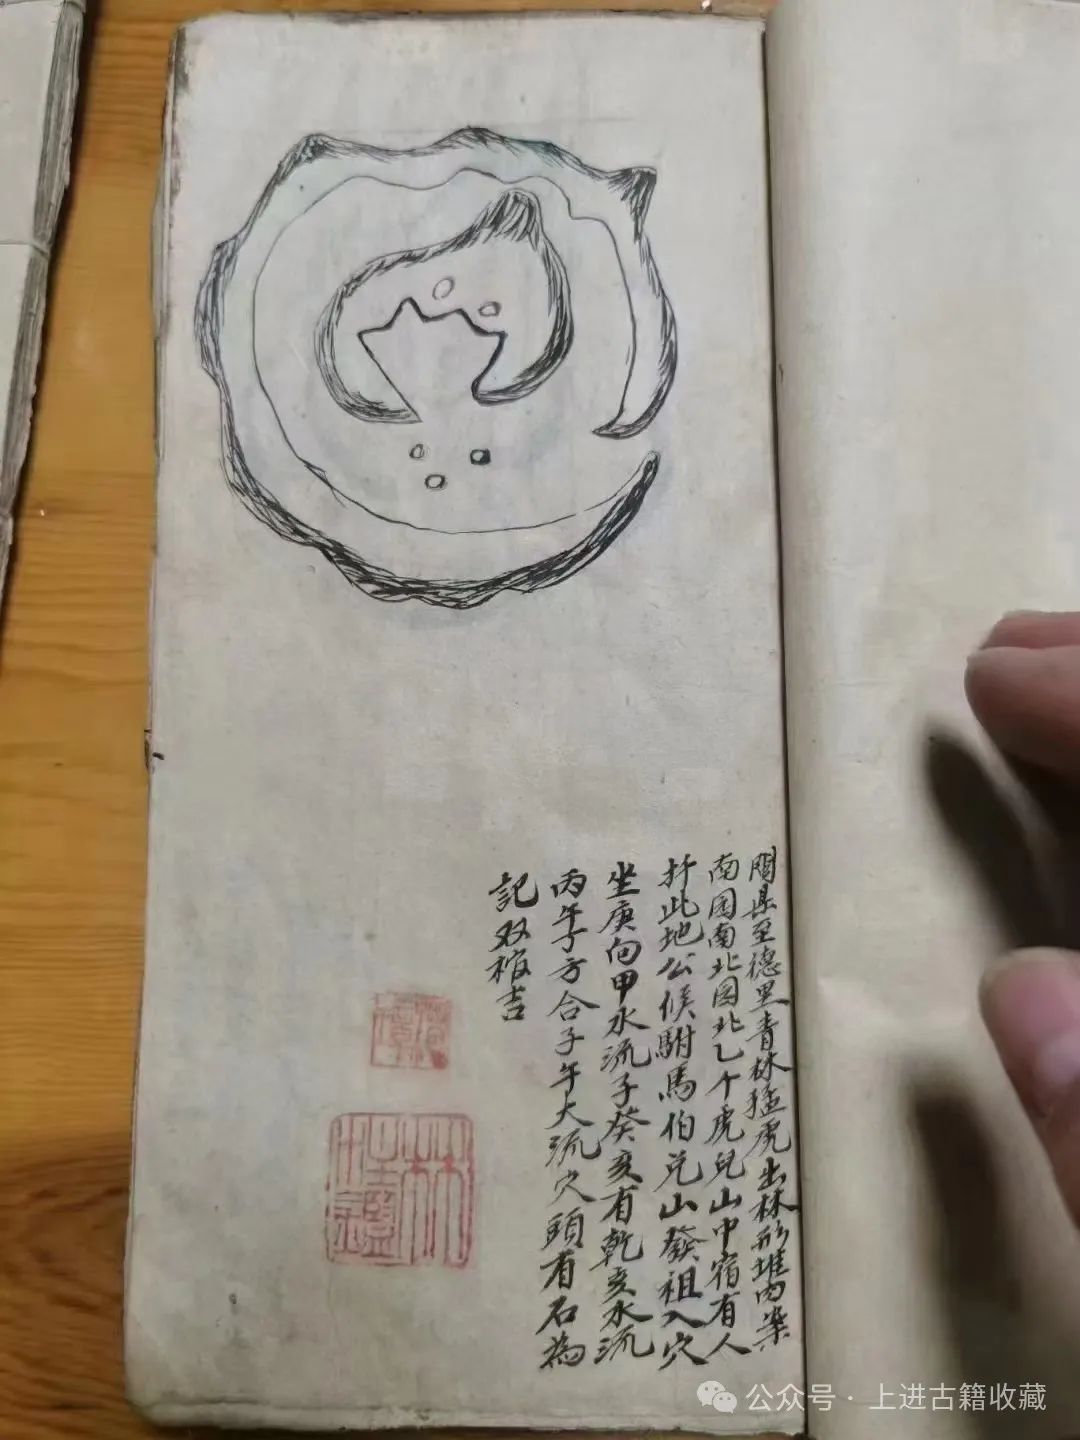 閩县至德里青林猛虎出林形堆肉案
南园南北园北乙个虎兒山中宿有人
扦此地公侯駙馬伯兑山發祖入穴
坐庚向甲水流子癸亥有乾亥水流
丙午子方合子午大流穴頭有石為
記双棺吉
林
鑑
公众号 · 上进古籍收藏